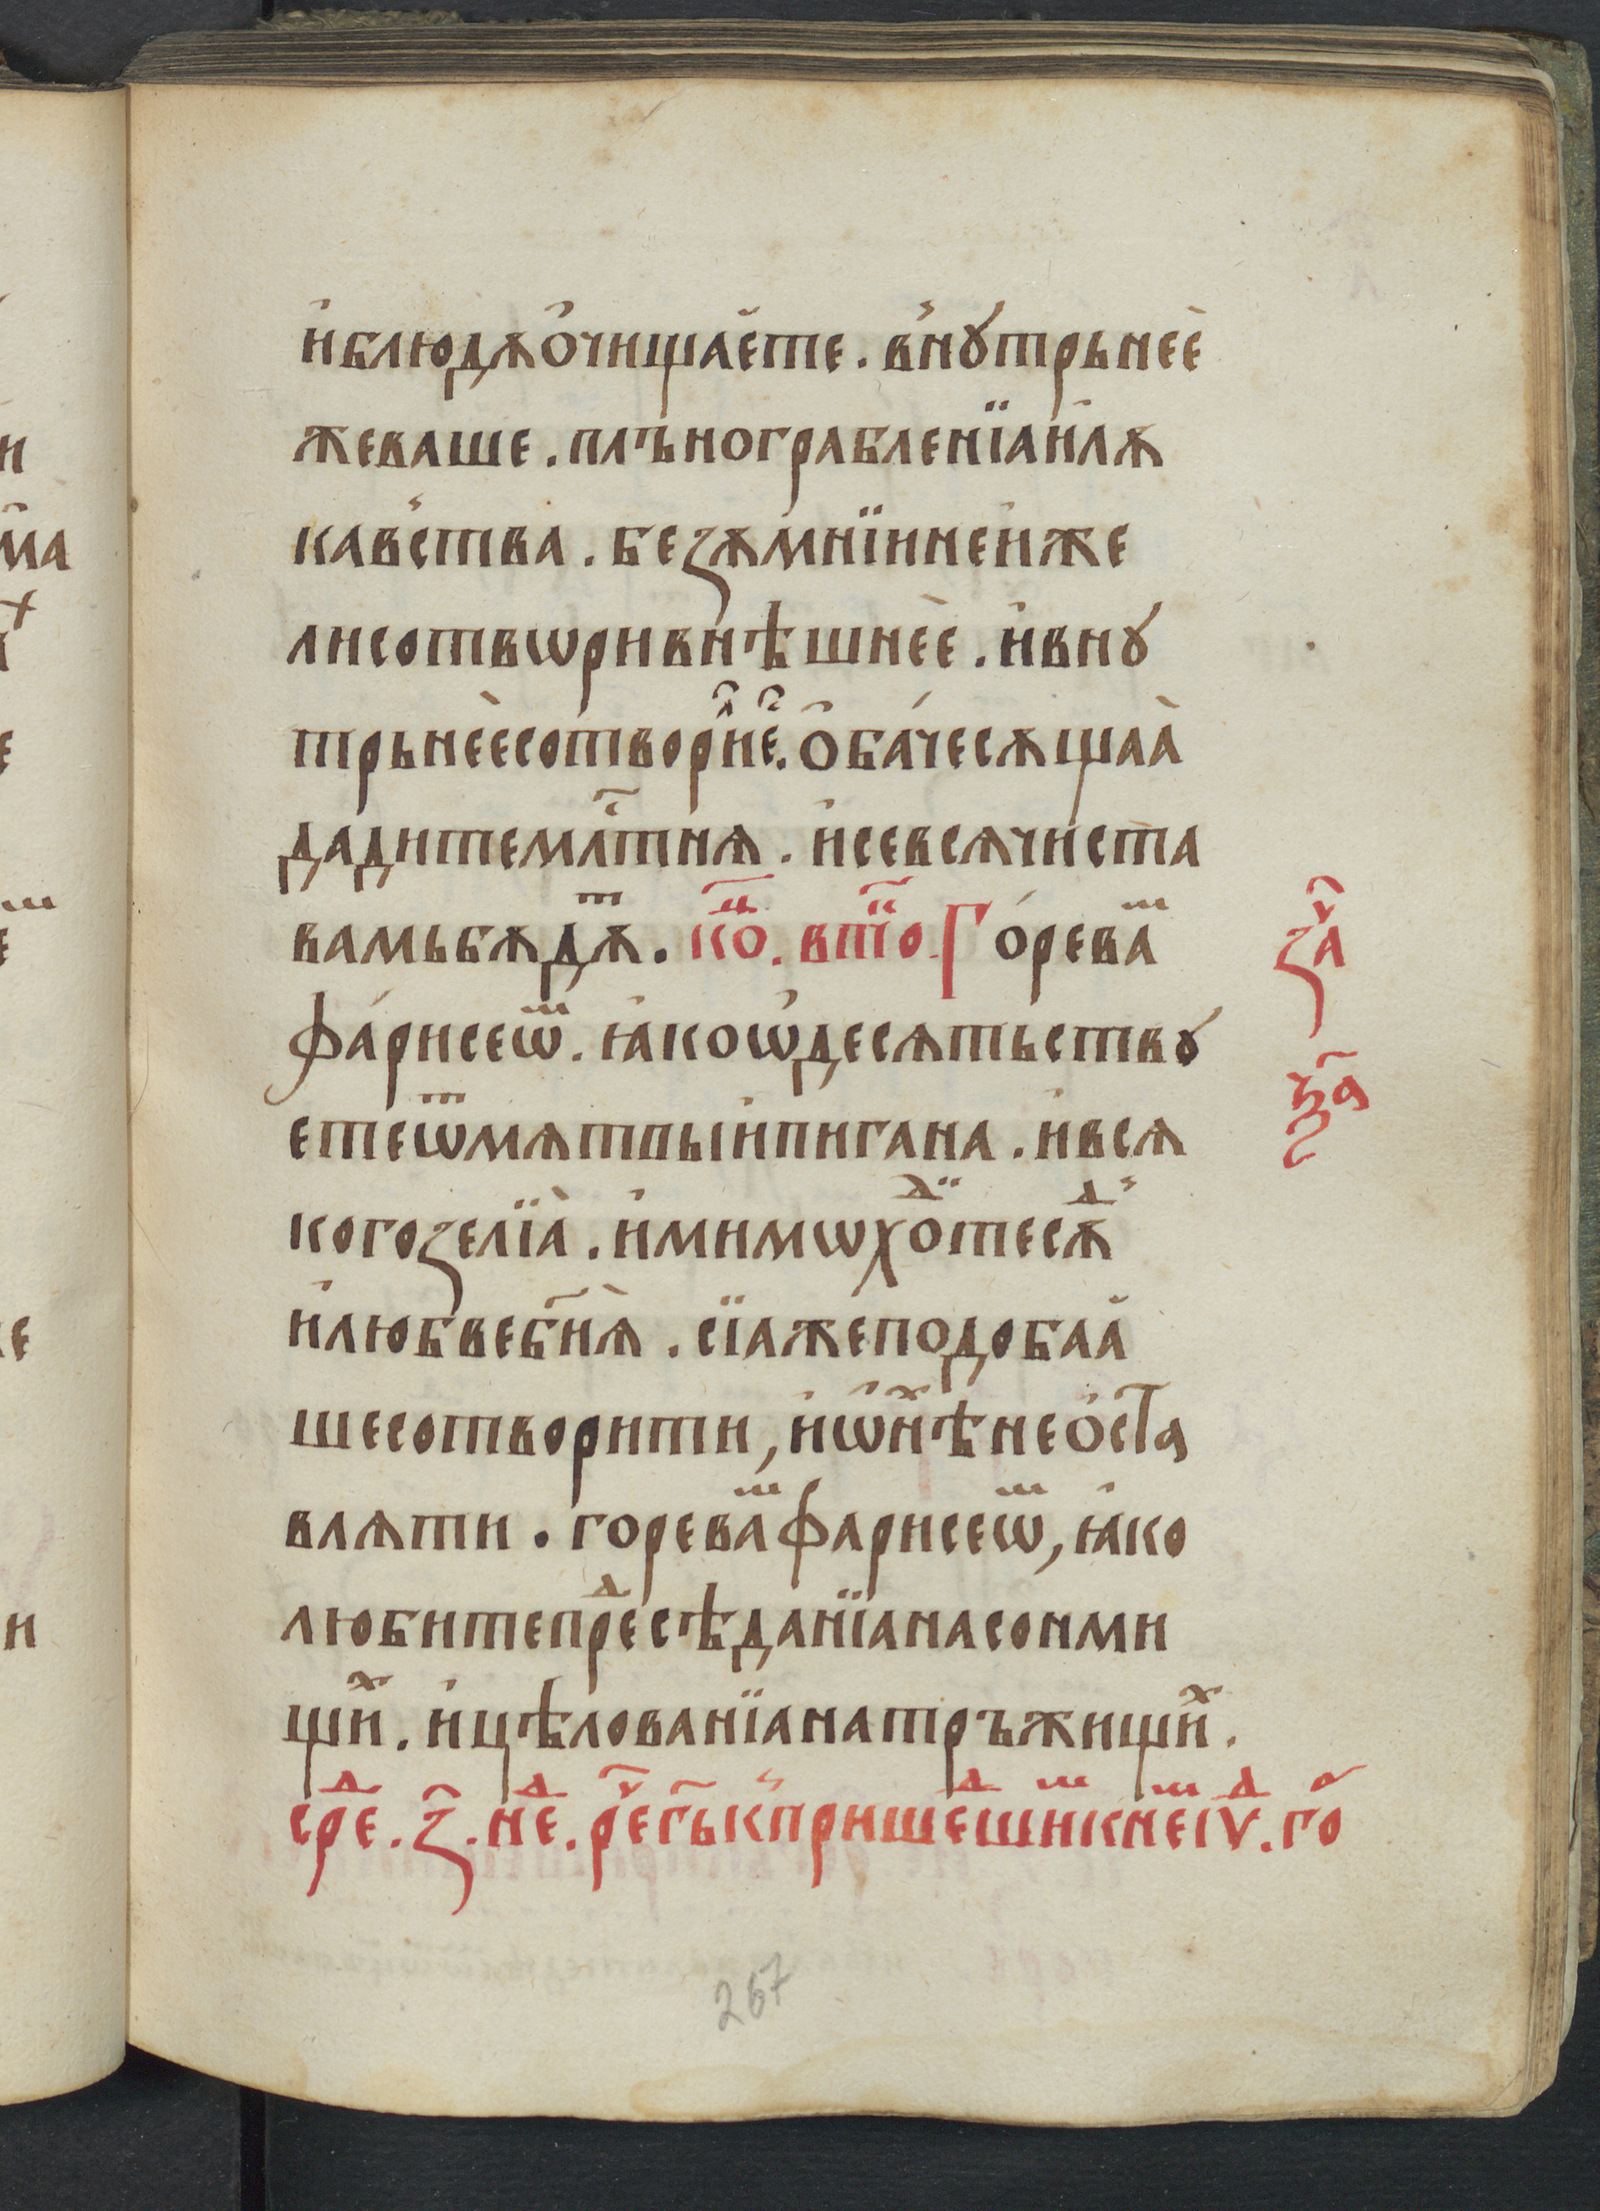 и҆блюдѫо҆чищае҆те. внꙋтрьнѐе
жеваше. плъ́ногрⰰбленїаи҆лѫ
кавства. безѫмнїиинеи҆же
лисотвѡривнѣшнѐе. и҆внꙋ
трьнѐесотвори̑не̑. о҆ба́чесѫщаа̀
дадитемлⷭ҇тнѧ. и҆севсѧчи́ста
вамьбѫдѫⷮ. коⷰ҇. втїоⷦ҇. Го́реваⷨ
фа́рисеѡⷨ. ꙗ҆коѡ҆десѧтьствꙋ
етеѿмѧтвыи҆пигана. и҆всѧ
когоꙁелїа̀. и҆мимѡхоⷣ҇тесѫⷣ
и҆любвебж҃їѧ. сїажеподобаа҆
шесотворити, и҆ѡ҆нѣⷯнео҆ста
влѧти. гореваⷨфарисеѡⷨ, ꙗ҆ко
любитепреⷣсѣданїанасонми
щиⷯ. и҆цѣлованїанатръжищиⷯ.
среⷣ. з҃. неⷣ. рече гь҃кпришеⷣшиⷨкнемꙋ іюⷣ. гоⷬ
зⷱ҇а
ѯ҃а
267